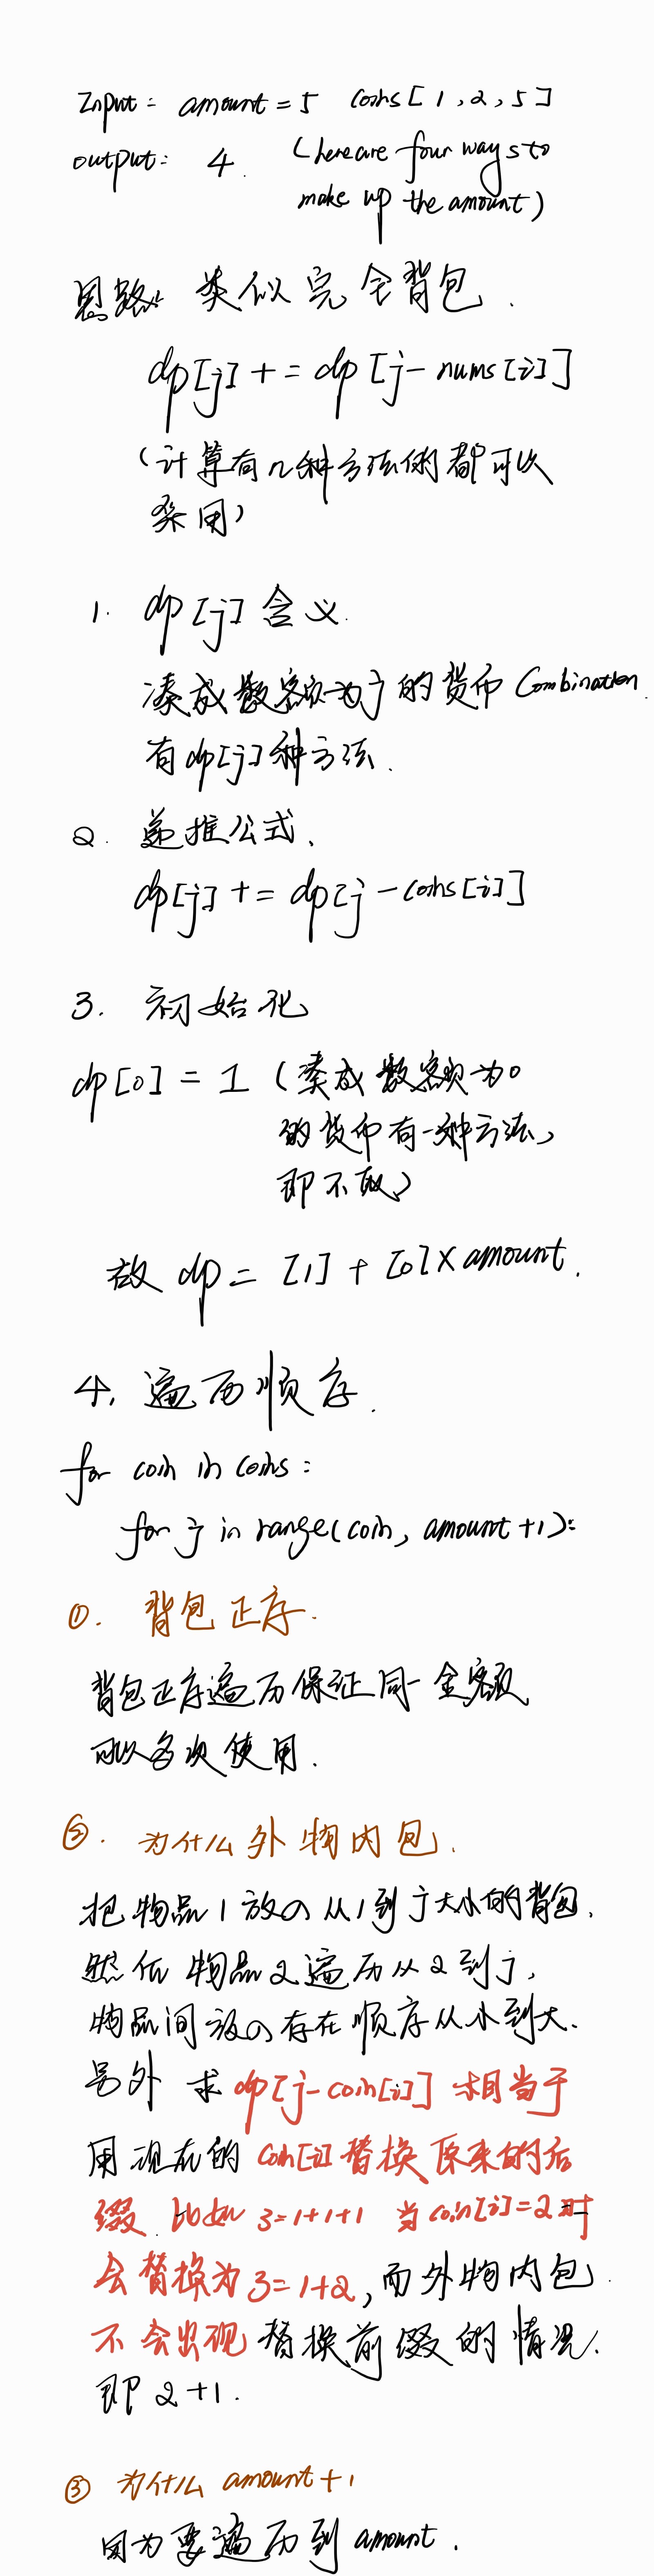 Input: amount = 5 coins [1, 2, 5]
output: 4. (here are four ways to
make up the amount)
思路: 类似完全背包.
dp[j] += dp[j - nums[i]]
(计算有几种方法的都可以
采用)
1. dp[j] 含义.
凑成数额为j的货币 Combination.
有 dp[j] 种方法.
2. 递推公式.
dp[j] += dp[j - coins[i]]
3. 初始化
dp[0] = 1 (凑成数额为0
的货币有一种方法,
即不取)
故 dp = [1] + [0] × amount.
4. 遍历顺序.
for coin in coins:
for j in range(coin, amount+1):
①. 背包正序.
背包正序遍历保证同一金额
可以多次使用.
②. 为什么外物内包.
把物品1放入从1到j大小的背包.
然后物品2遍历从2到j,
物品间放入存在顺序从小到大.
另外 求 dp[j-coin[i]] 相当于
用现在的 coin[i] 替换原来的后
缀. 比如 3=1+1+1 当 coin[i]=2 时
会替换为 3=1+2, 而外物内包.
不会出现替换前缀的情况.
即 2+1.
③ 为什么 amount+1
因为要遍历到 amount.